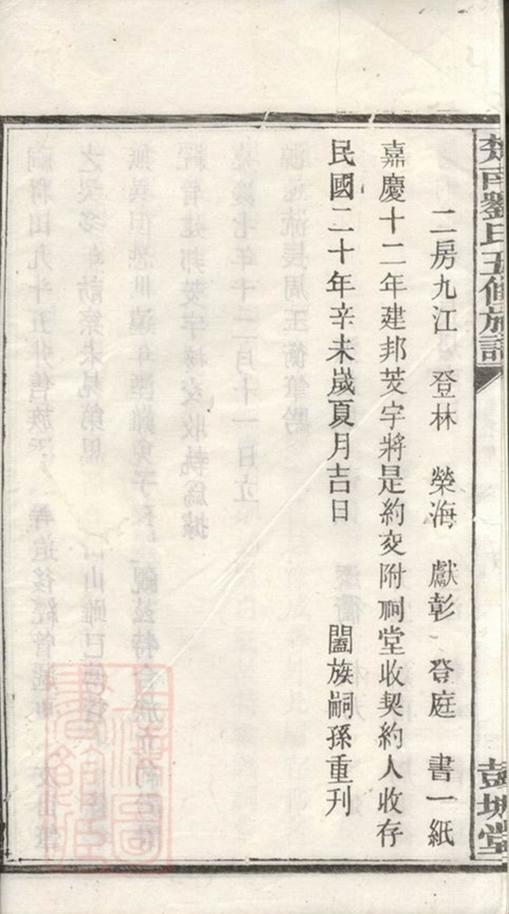 楚南劉氏五修族譜
彭城堂
二房九江 登林 榮海 獻彰 登庭 書一紙
嘉慶十二年建邦茭字將是約交附祠堂收契約人收存
民國二十年辛未歲夏月吉日 闔族嗣孫重刊